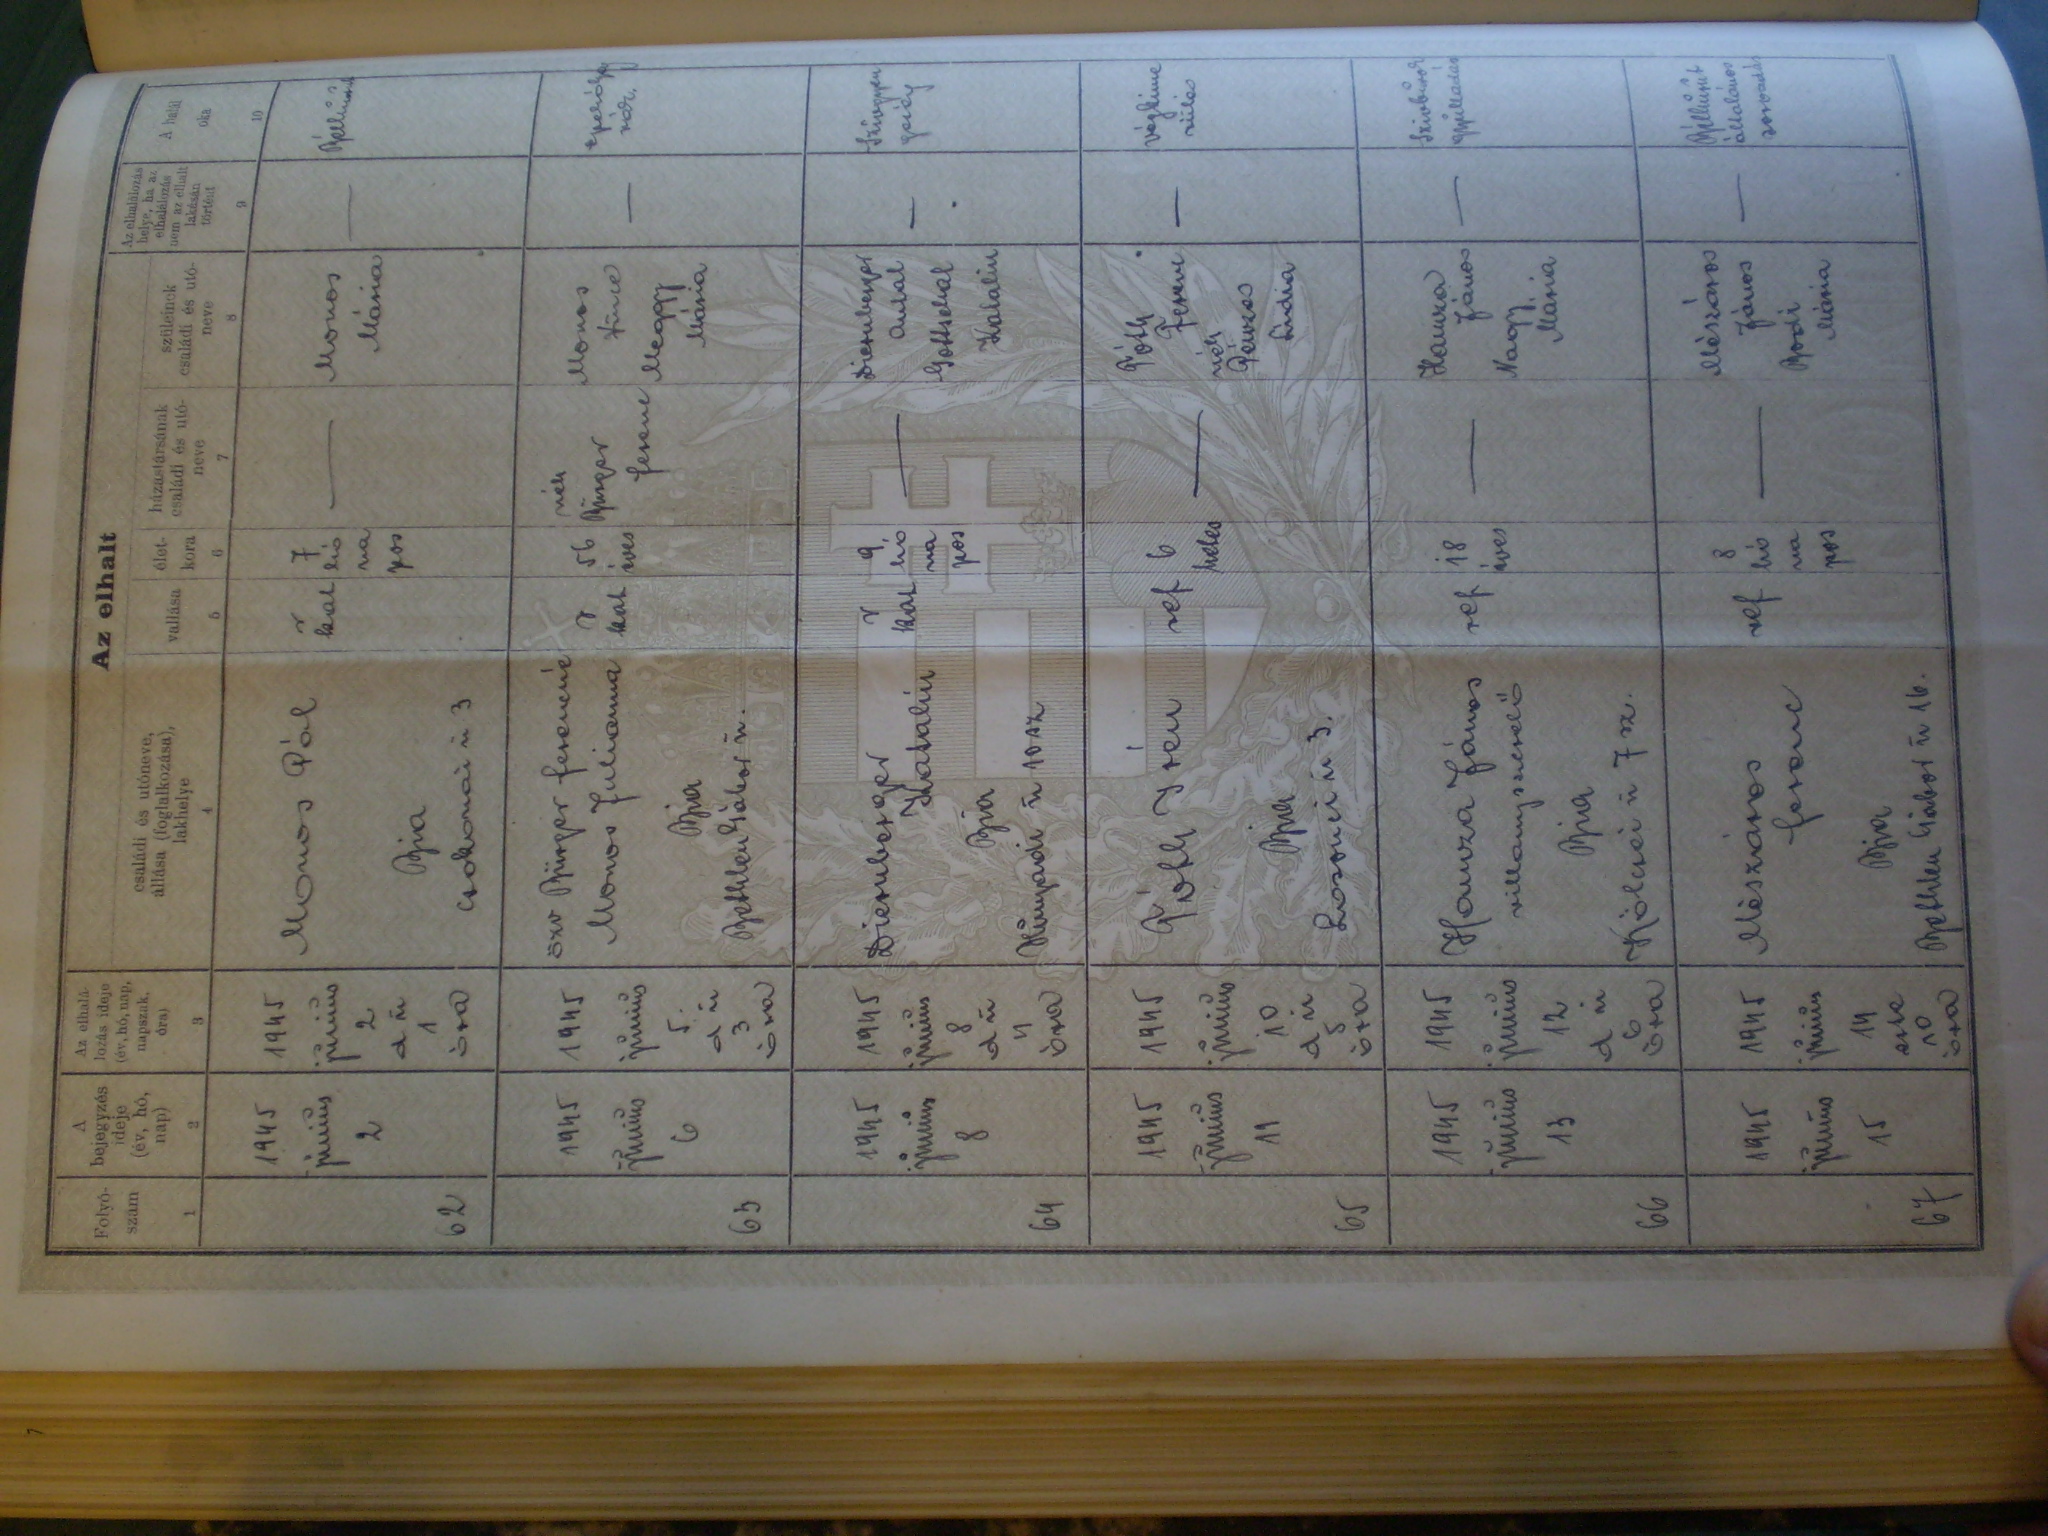 Az elhalt
Folyó-
szám
A
bejegyzés
ideje
(év, hó,
nap)
Az elhalá-
lozás ideje
(év, hó, nap,
napszak,
óra)
családi és utóneve,
állása (foglalkozása),
lakhelye
vallása
élet-
kora
házastársának
családi és utó-
neve
szüleinek
családi és utó-
neve
Az elhalálozás
helye, ha az
elhalálozás
nem az elhalt
lakásán
történt
A halál
oka
1
2
3
4
5
6
7
8
9
10
62
1945
június
2
1945
június
2
d u
1
óra
Monos Pál
Bia
Csokonai u 3
r
kat
7
hó
na
pos
—
Monos
Mária
—
Bélhurut
63
1945
június
6
1945
június
5.
d u
3
óra
özv Bürger Ferencné
Monos Julianna
Bia
Bethlen Gábor u.
r
kat
56
éves
néh
Bürger
Ferenc
Monos
Vince
Meggy
Mária
—
64
1945
június
8
1945
június
8
d u
4
óra
Dienberger
Katalin
Bia
Hunyadi u 10 sz
r
kat
9
hó
na
pos
—
Dienberger
Antal
Gottschal
Katalin
—
Szívgyen
geség
65
1945
június
11
1945
június
10
d u
5
óra
Tóth Irén
Bia
Losonci u 3.
ref
6
hetes
—
Tóth
Ferenc
néh
Lidia
—
66
1945
június
13
1945
június
12
d u
6
óra
Hamza János
villanyszerelő
Bia
Kölcsei u 7 sz.
ref
18
éves
—
Hamza
János
Nagy
Mária
—
67
1945
június
15
1945
június
14
este
10
óra
Mészáros
Ferenc
Bia
Bethlen Gábor u 16.
ref
8
hó
na
pos
—
Mészáros
János
Bodi
Mária
—
Bélhurut
általános
sorvadás